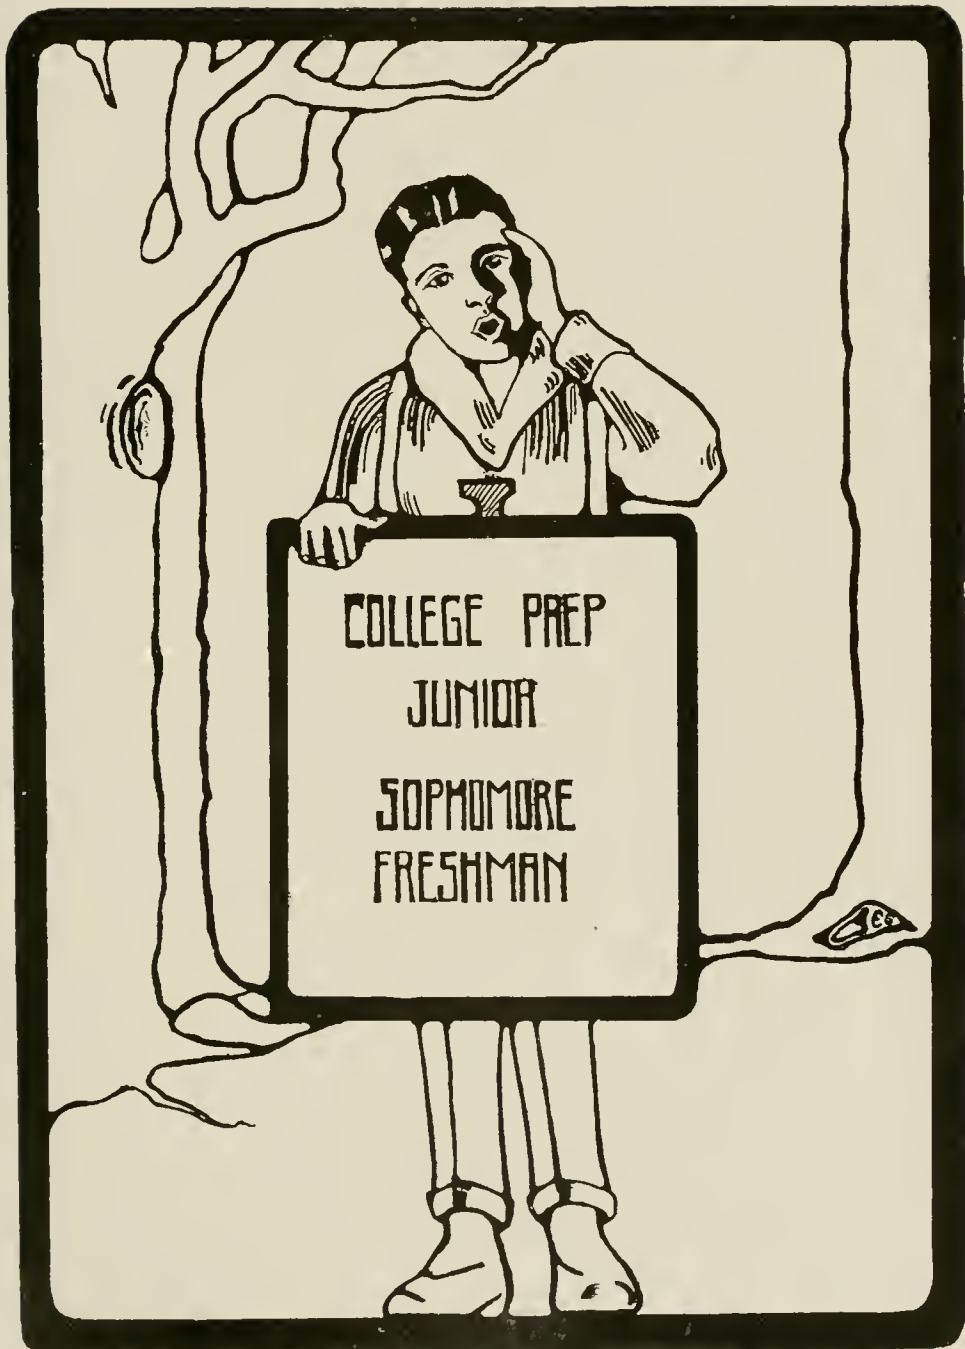 COLLEGE PREP
JUNIOR
SOPHOMORE
FRESHMAN